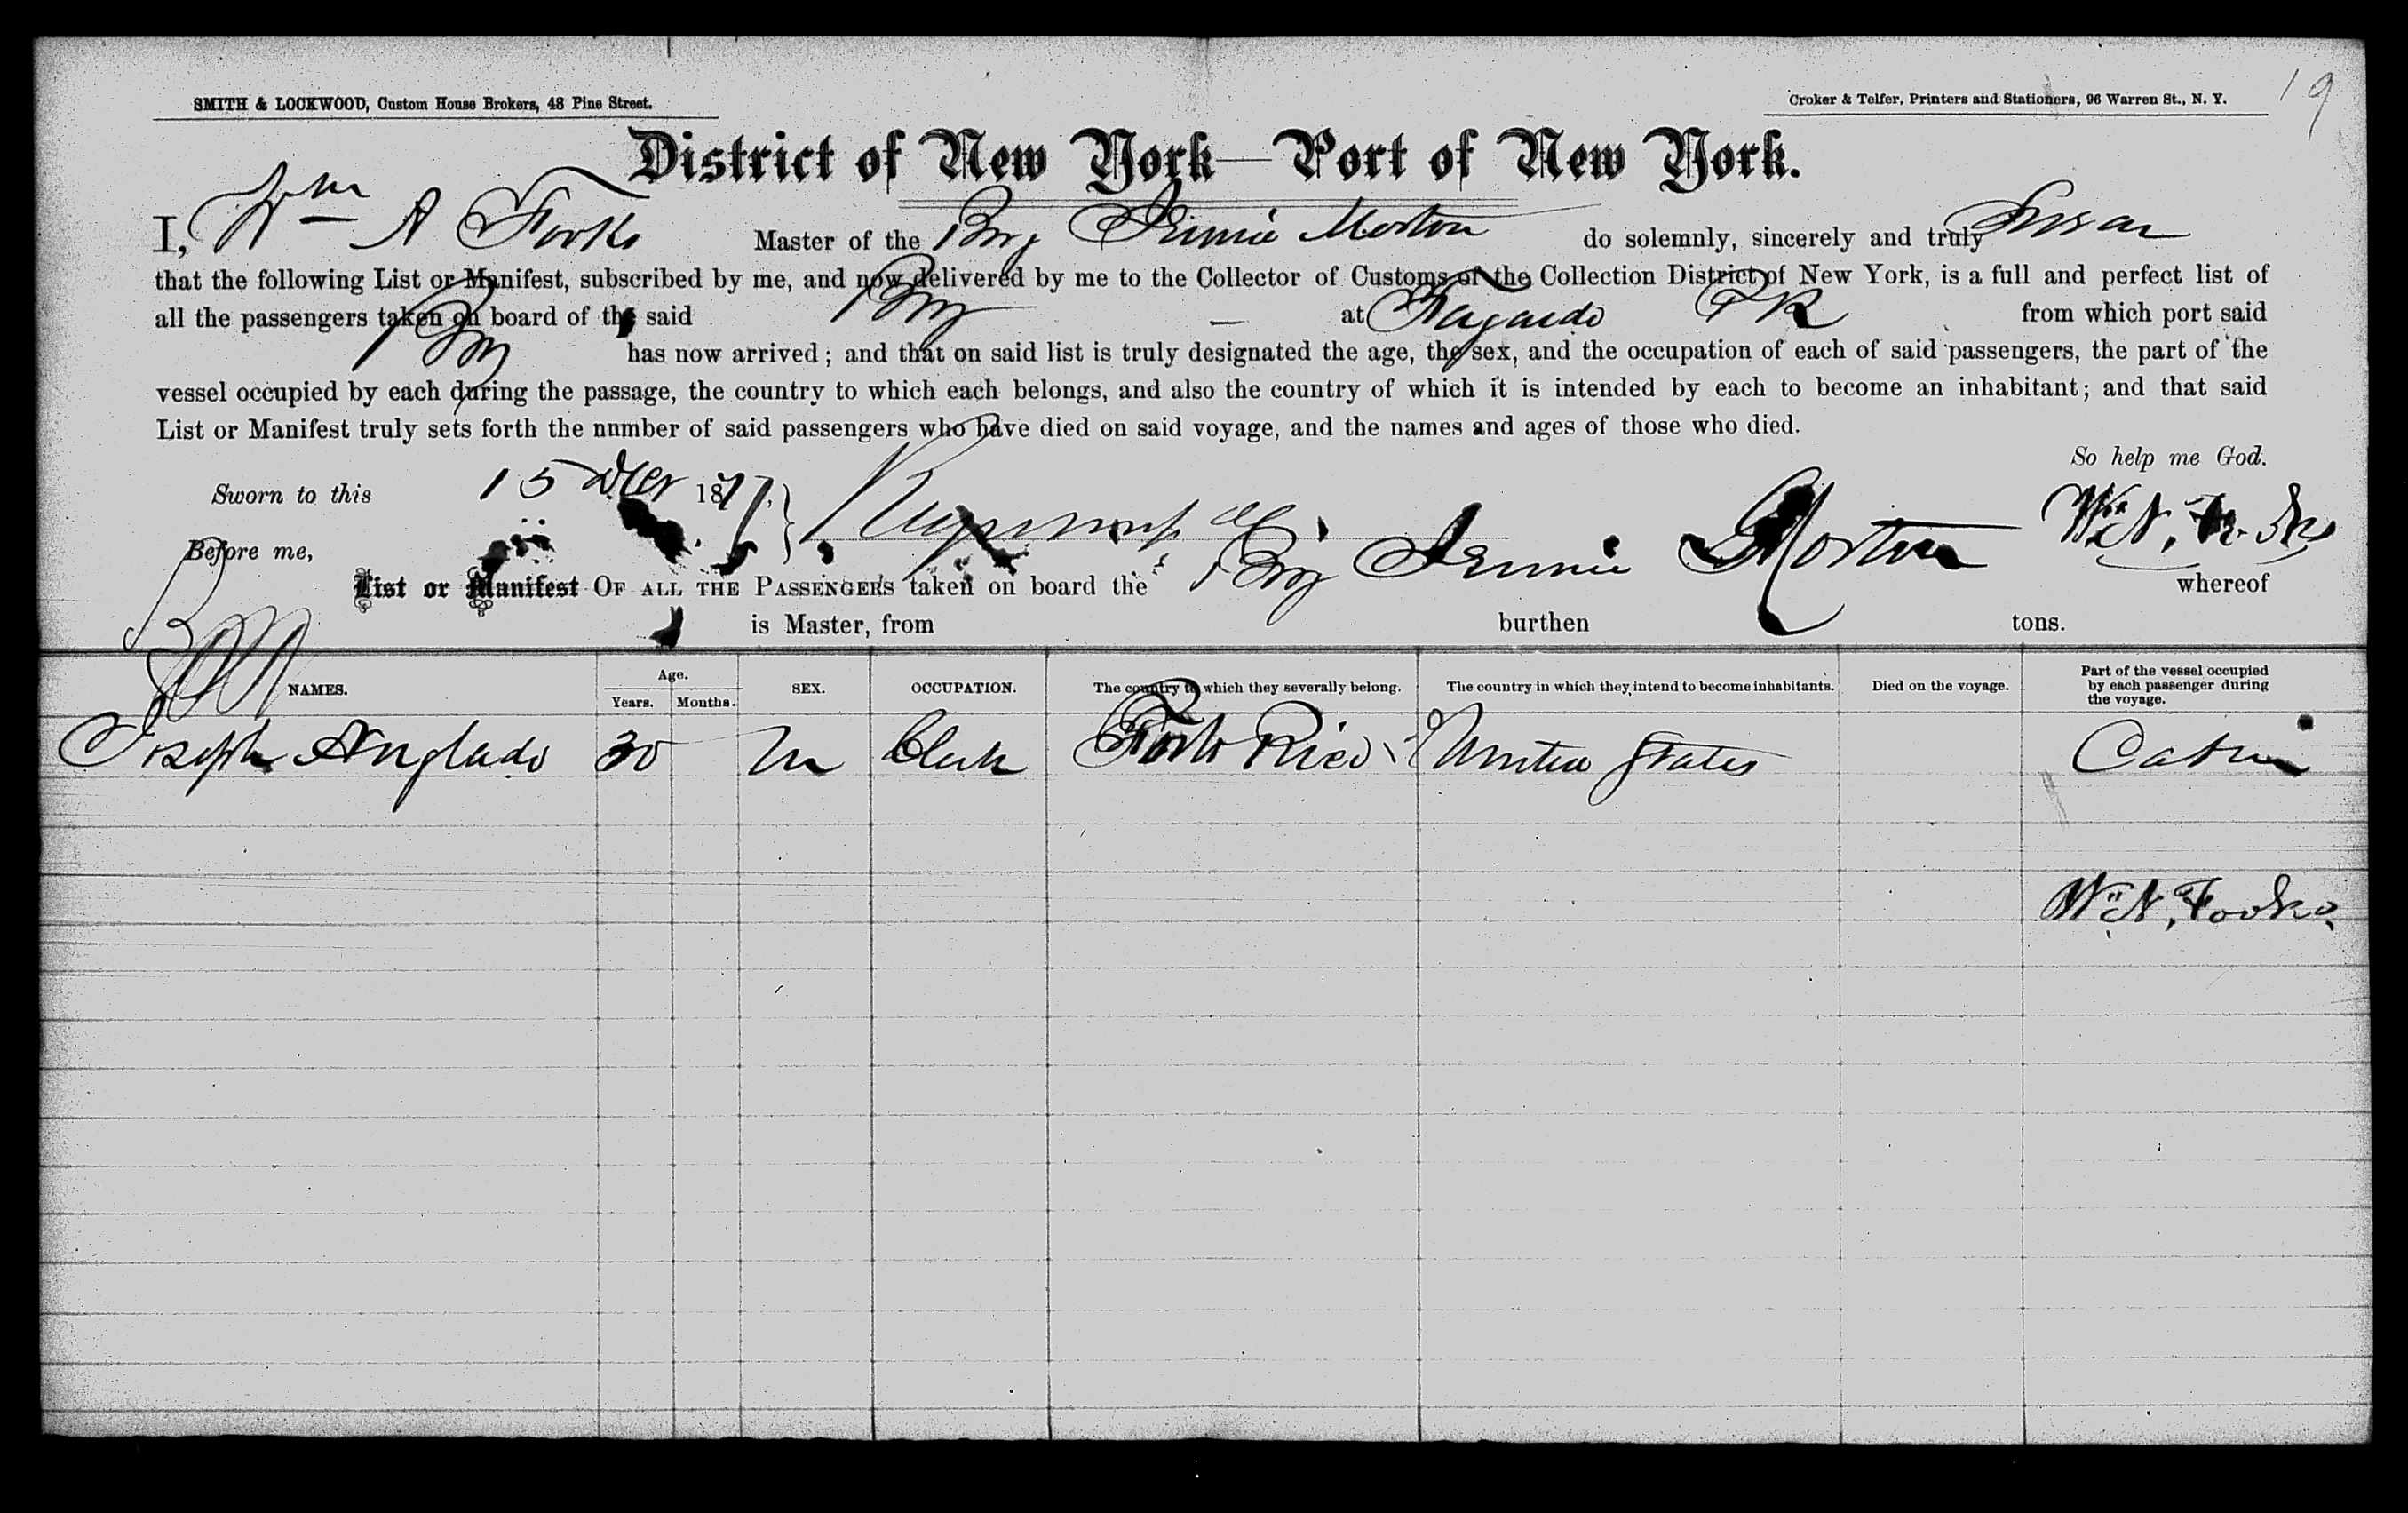 19
SMITH & LOCKWOOD, Custom House Brokers, 48 Pine Street.
Croker & Telfer, Printers and Stationers, 96 Warren St., N. Y.
District of New York—Port of New York.
I, Wm A Fooks Master of the Brig Jennie Morton do solemnly, sincerely and truly Swear
that the following List or Manifest, subscribed by me, and now delivered by me to the Collector of Customs of the Collection District of New York, is a full and perfect list of
all the passengers taken on board of the said Brig — at Fagardo P R from which port said
Brig has now arrived; and that on said list is truly designated the age, the sex, and the occupation of each of said passengers, the part of the
vessel occupied by each during the passage, the country to which each belongs, and also the country of which it is intended by each to become an inhabitant; and that said
List or Manifest truly sets forth the number of said passengers who have died on said voyage, and the names and ages of those who died.
So help me God.
Sworn to this 15 Decr 1877.
Before me,
List or Manifest OF ALL THE PASSENGERS taken on board the Brig Jennie Morton whereof
is Master, from burthen tons.
NAMES. Age. Years. Months. SEX. OCCUPATION. The country to which they severally belong. The country in which they intend to become inhabitants. Died on the voyage. Part of the vessel occupied by each passenger during the voyage.
Joseph Anglado 30 M Clerk Porto Rico United States Cabin
Wm A. Fooks